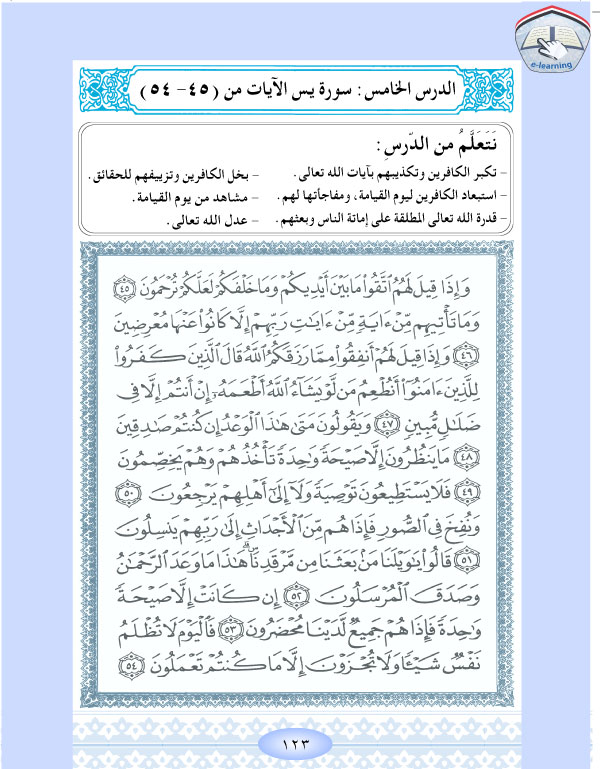 e-learning
الدرس الخامس : سورة يس الآيات من (٤٥- ٥٤)
نَتَعَلَّمُ من الدّرسِ :
- تكبر الكافرين وتكذيبهم بآيات الله تعالى. - بخل الكافرين وتزييفهم للحقائق.
- استبعاد الكافرين ليوم القيامة، ومفاجأتها لهم. - مشاهد من يوم القيامة.
- قدرة الله تعالى المطلقة على إماتة الناس وبعثهم. - عدل الله تعالى.
وَإِذَا قِيلَ لَهُمُ ٱتَّقُوا۟ مَا بَيْنَ أَيْدِيكُمْ وَمَا خَلْفَكُمْ لَعَلَّكُمْ تُرْحَمُونَ ٤٥
وَمَا تَأْتِيهِم مِّنْ ءَايَةٍ مِّنْ ءَايَٰتِ رَبِّهِمْ إِلَّا كَانُوا۟ عَنْهَا مُعْرِضِينَ
٤٦ وَإِذَا قِيلَ لَهُمْ أَنفِقُوا۟ مِمَّا رَزَقَكُمُ ٱللَّهُ قَالَ ٱلَّذِينَ كَفَرُوا۟
لِلَّذِينَ ءَامَنُوٓا۟ أَنُطْعِمُ مَن لَّوْ يَشَآءُ ٱللَّهُ أَطْعَمَهُۥٓ إِنْ أَنتُمْ إِلَّا فِى
ضَلَٰلٍ مُّبِينٍ ٤٧ وَيَقُولُونَ مَتَىٰ هَٰذَا ٱلْوَعْدُ إِن كُنتُمْ صَٰدِقِينَ
٤٨ مَا يَنظُرُونَ إِلَّا صَيْحَةً وَٰحِدَةً تَأْخُذُهُمْ وَهُمْ يَخِصِّمُونَ
٤٩ فَلَا يَسْتَطِيعُونَ تَوْصِيَةً وَلَآ إِلَىٰٓ أَهْلِهِمْ يَرْجِعُونَ ٥٠
وَنُفِخَ فِى ٱلصُّورِ فَإِذَا هُم مِّنَ ٱلْأَجْدَاثِ إِلَىٰ رَبِّهِمْ يَنسِلُونَ
٥١ قَالُوا۟ يَٰوَيْلَنَا مَنۢ بَعَثَنَا مِن مَّرْقَدِنَا ۜ ۗ هَٰذَا مَا وَعَدَ ٱلرَّحْمَٰنُ
وَصَدَقَ ٱلْمُرْسَلُونَ ٥٢ إِن كَانَتْ إِلَّا صَيْحَةً
وَٰحِدَةً فَإِذَا هُمْ جَمِيعٌ لَّدَيْنَا مُحْضَرُونَ ٥٣ فَٱلْيَوْمَ لَا تُظْلَمُ
نَفْسٌ شَيْـًٔا وَلَا تُجْزَوْنَ إِلَّا مَا كُنتُمْ تَعْمَلُونَ ٥٤
١٢٣